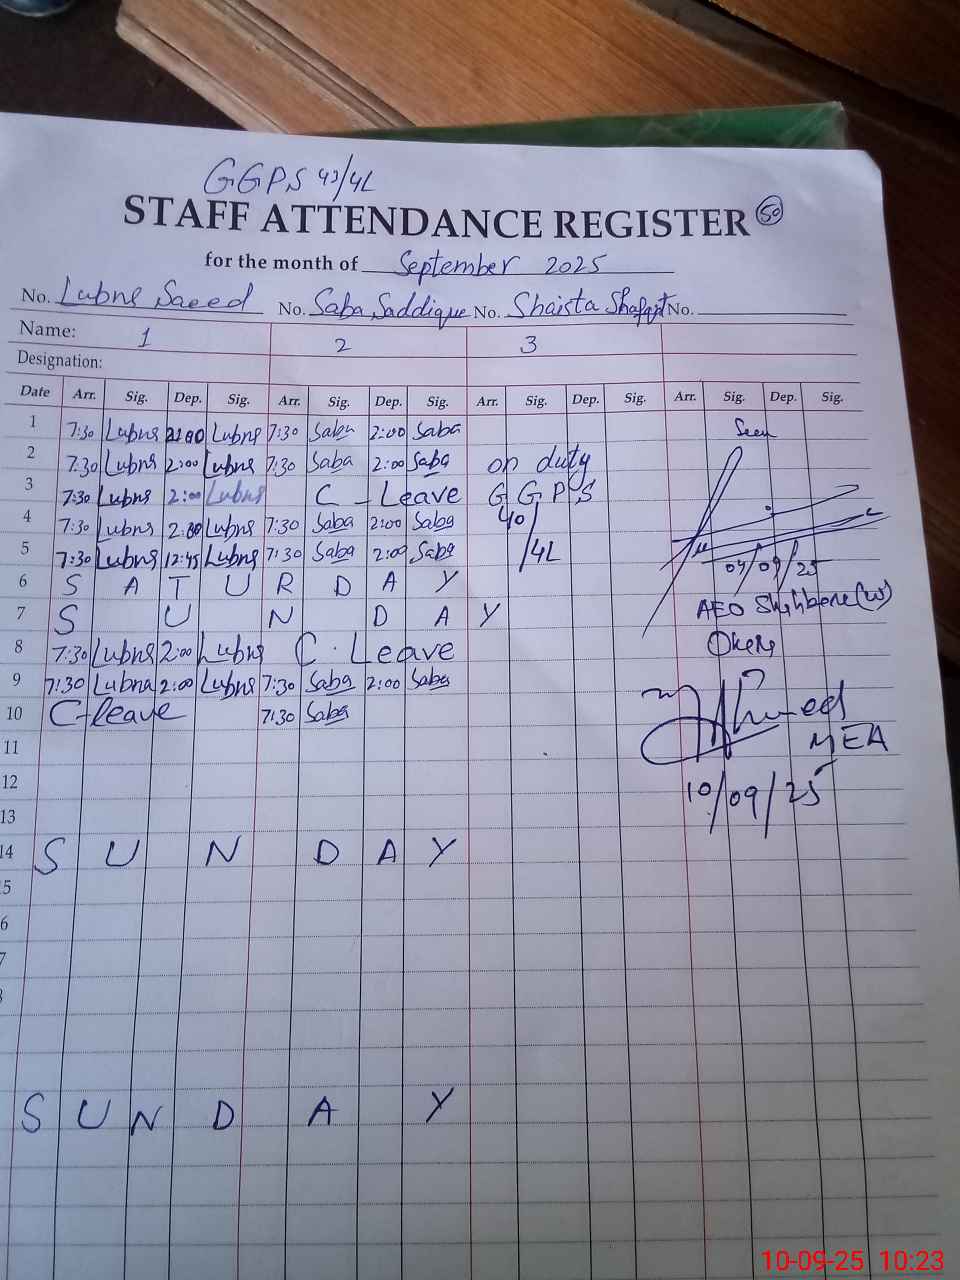 GGPS 43/4L
STAFF ATTENDANCE REGISTER 50
for the month of September 2025
No. Lubna Saeed No. Saba Saddique No. Shaista Shafqat No.
Name: 1 2 3
Designation:
Date Arr. Sig. Dep. Sig. Arr. Sig. Dep. Sig. Arr. Sig. Dep. Sig. Arr. Sig. Dep. Sig.
1 7:30 Lubna 2:00 Lubna 7:30 Saba 2:00 Saba Seen
2 7:30 Lubna 2:00 Lubna 7:30 Saba 2:00 Saba on duty
3 7:30 Lubna 2:00 Lubna C-Leave GGPS
4 7:30 Lubna 2:00 Lubna 7:30 Saba 2:00 Saba 40/
5 7:30 Lubna 12:45 Lubna 7:30 Saba 2:00 Saba /4L
6 SATURDAY
7 SUNDAY
04/09/25
AEO (W)
Okara
8 7:30 Lubna 2:00 Lubna C.Leave
9 7:30 Lubna 2:00 Lubna 7:30 Saba 2:00 Saba
10 C-leave 7:30 Saba
MEA
10/09/25
11
12
13
14 SUNDAY
5
6
7
SUNDAY
10-09-25 10:23